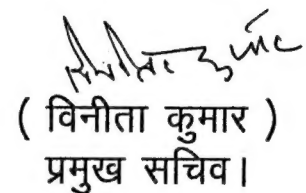 ( विनीता कुमार )
प्रमुख सचिव।